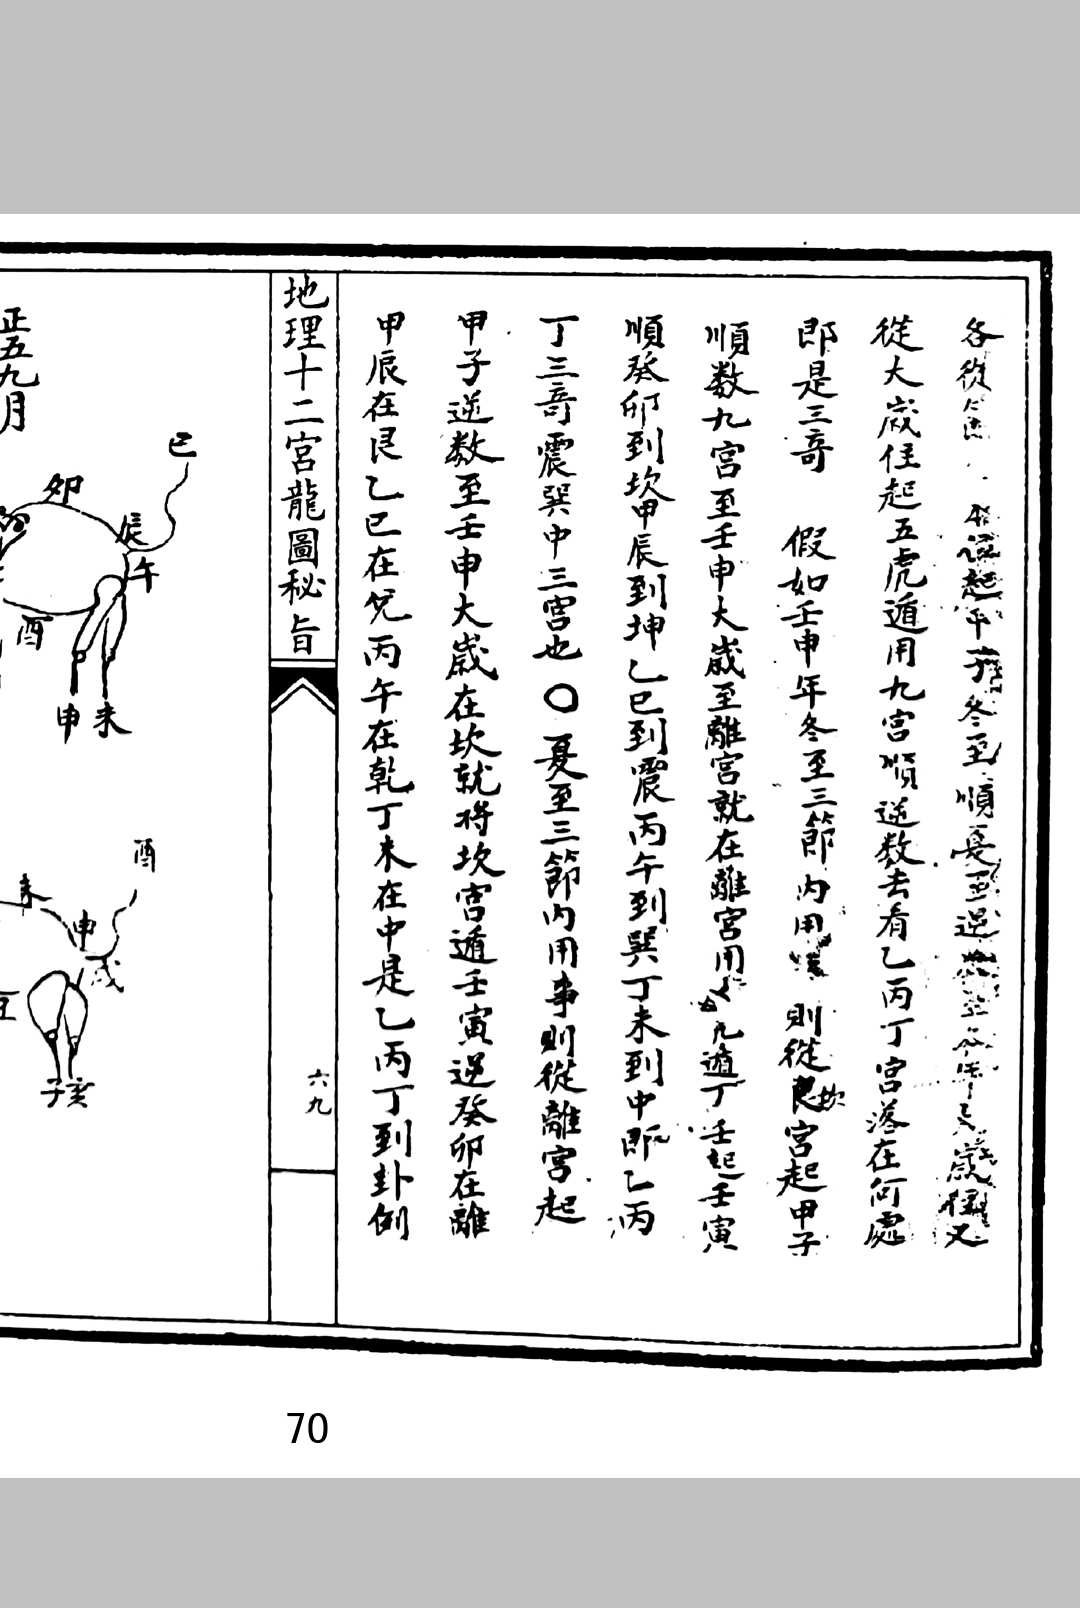 各從
起甲子冬至順夏至逆
從大歲住起五虎遁用九宮順逆数去看乙丙丁宮落在何處
即是三奇 假如壬申年冬至三節内用 則從艮坎宮起甲子
順数九宮至壬申大歲至離宮就在離宮用 遁丁壬起壬寅
順癸卯到坎甲辰到坤乙巳到震丙午到巽丁未到中即乙丙
丁三奇震巽中三宮也〇夏至三節内用事則從離宮起
甲子逆数至壬申大歲在坎就將坎宮遁壬寅逆癸卯在離
甲辰在艮乙巳在兌丙午在乾丁未在中是乙丙丁到卦例
地理十二宮龍圖秘旨
六九
正五九月
巳
卯
辰
午
酉
申
未
酉
未
申
戌
子
亥
70